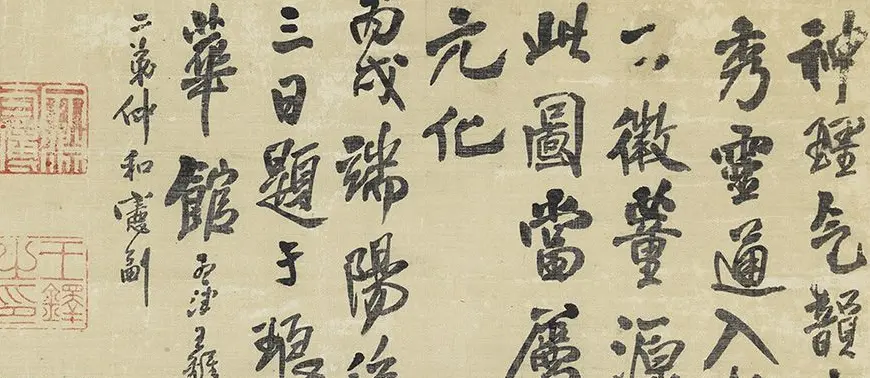 神理气韻
秀靈逼入
徽董源
此圖當屬
元化
丙戌端陽後
三日題于琅
華館 孟津王鐸
二弟仲和憲副
王鐸之印